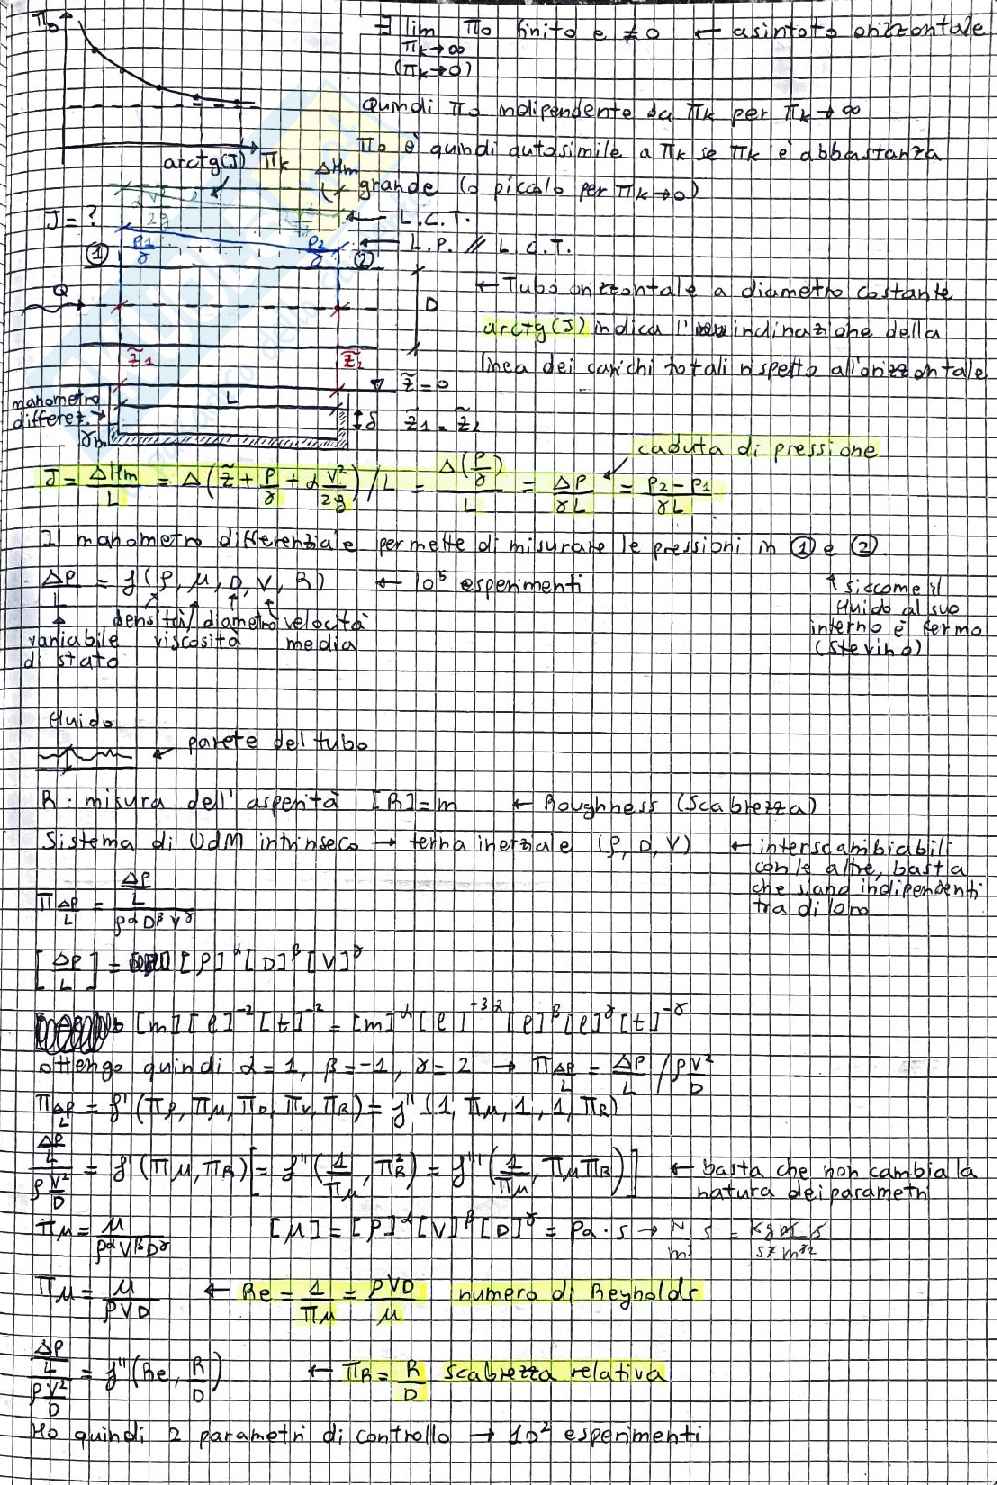 Π₀
∃ lim Π₀ finito e ≠ 0 ← asintoto orizzontale
Πk→∞
(Πk→0)
Quindi Π₀ indipendente da Πk per Πk → ∞
Π₀ è quindi autosimile a Πk se Πk è abbastanza
grande (o piccolo per Πk→0)
arctg(J) Πk ΔHm
J = ? V²/2g ← L.C.T.
① P₁/γ P₂/γ ② ← L.P. // L.C.T.
Q D ← Tubo orizzontale a diametro costante
arctg(J) indica l'inclinazione della
linea dei carichi totali rispetto all'orizzontale
z̃₁ z̃₂
L z̃=0
manometro
differez. δ z̃₁ = z̃₂
γm
caduta di pressione
J = ΔHm/L = Δ(z̃ + P/γ + α V²/2g)/L = Δ(P/γ)/L = ΔP/γL = P₂-P₁/γL
Il manometro differenziale permette di misurare le pressioni in ① e ②
ΔP/L = f(ρ, μ, D, V, R) ← 10⁵ esperimenti
↑ siccome il
fluido al suo
interno è fermo
(Stevino)
densità diametro velocità
variabile viscosità media
di stato
fluido
← parete del tubo
R: misura dell'asperità [R]=m ← Roughness (Scabrezza)
Sistema di UdM intrinseco → terna inerziale (ρ, D, V) ← interscambiabili
con le altre, basta
che siano indipendenti
tra di loro
Π ΔP/L = ΔP/L / ρ^α D^β V^γ
[ΔP/L] = [ρ]^α [D]^β [V]^γ
[m][l]⁻²[t]⁻² = [m]^α [l]^-3α [l]^β [l]^γ [t]^-γ
ottengo quindi α=1, β=-1, γ=2 → Π ΔP/L = ΔP/L / ρV²/D
Π ΔP/L = f'(Πρ, Πμ, ΠD, ΠV, ΠR) = f''(1, Πμ, 1, 1, ΠR)
ΔP/L / ρ V²/D = f'(Πμ, ΠR) [= f''(1/Πμ, ΠR²) = f'''(1/Πμ, ΠμΠR)] ← basta che non cambia la
natura dei parametri
Πμ = μ/ρ^α V^β D^γ [μ] = [ρ]^α [V]^β [D]^γ = Pa·s → N/m² s =
Πμ = μ/ρVD ← Re = 1/Πμ = ρVD/μ numero di Reynolds
ΔP/L / ρ V²/D = f''(Re, R/D) ← ΠR = R/D scabrezza relativa
Ho quindi 2 parametri di controllo → 10² esperimenti